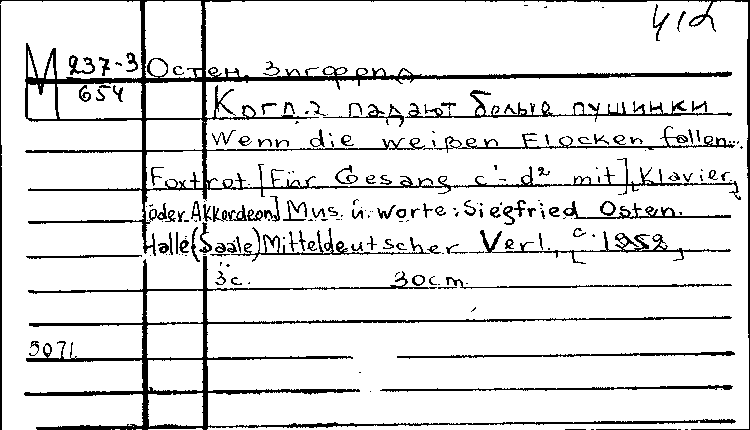 412
М 237-3 Остен, Зигфрид
654
Когда падают белые пушинки
Wenn die weißen Flocken fallen..
Foxtrot [Für Gesang c'- d² mit], Klavier,
[oder Akkordeon] Mus. u. Worte: Siegfried Osten.
Halle(Saale) Mitteldeutscher Verl., [c. 1952,
3c. 30cm.
5071